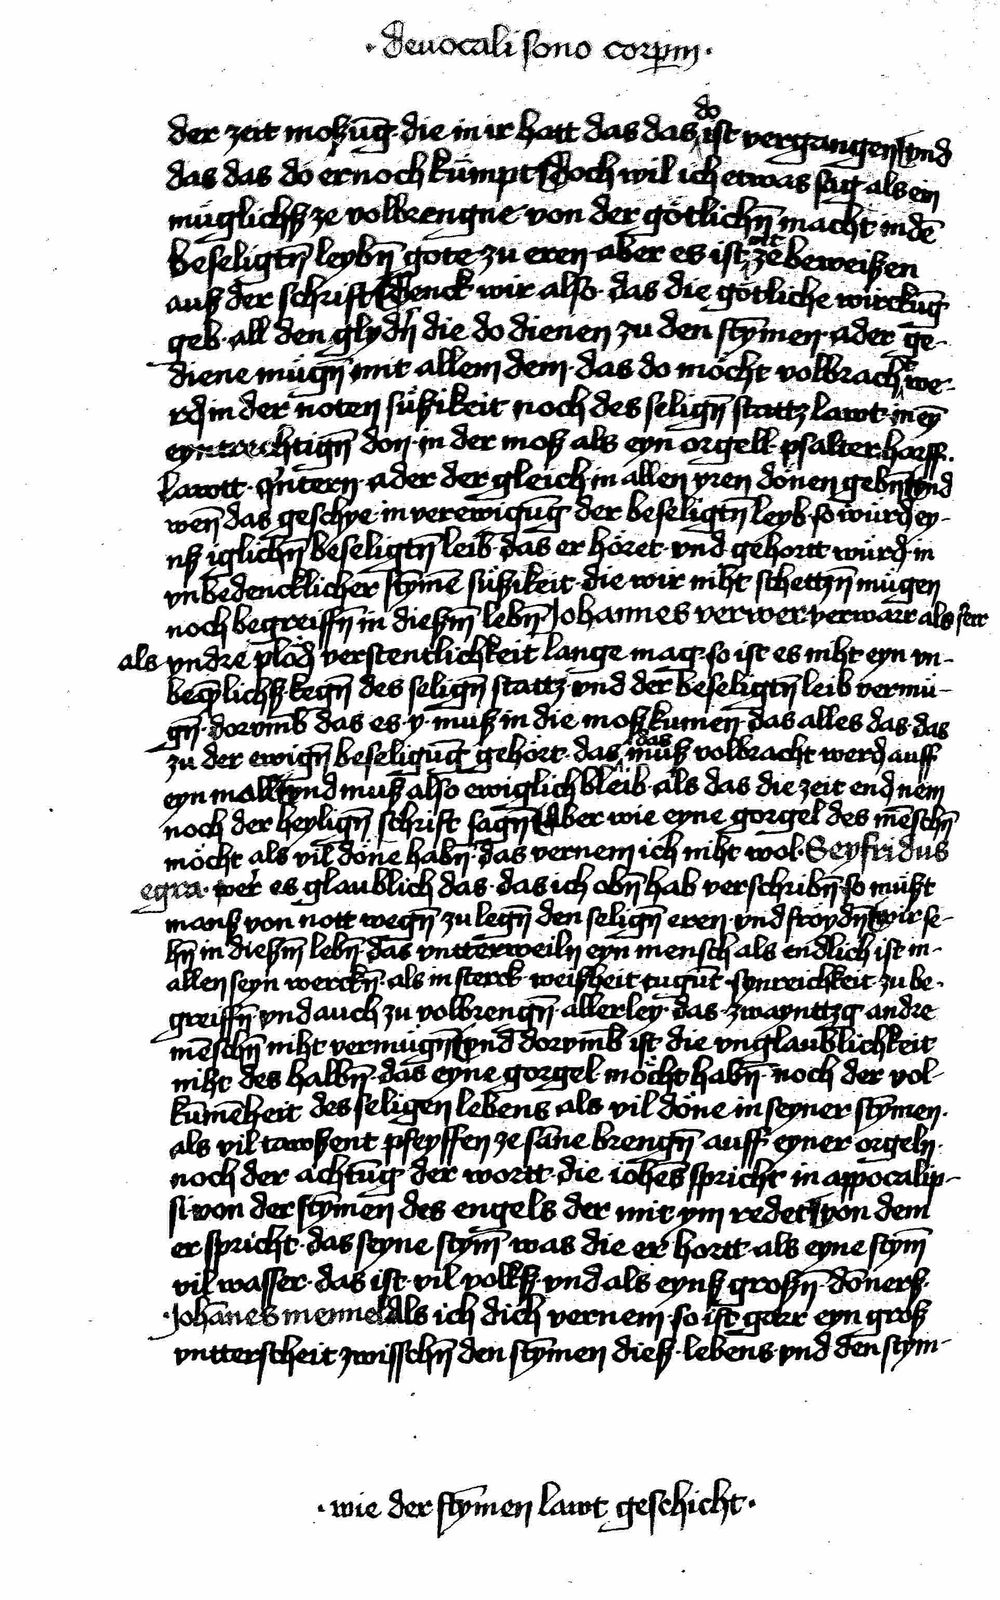 · de uocali sono corpm ·
der zeit moßūg · die in ir hatt das das do ist vergangen vnd
das das do er noch kümpt doch wil ich etwas sag als ein
müglichß ze volbrengne von der götlichn̄ macht in dē
beseligtn̄ leybn̄ gote zu eren aber es ist nit ze beweißen
auß der schrift Denck wir also · das die götliche würckūg
geb · all den glydn̄ die do dienen zu den stȳmen · ader ge-
diene mügn̄ mit allem dem · das do möcht volbracht we-
rd in der noten süßikeit noch des selign̄ stattz lawt · in eȳ
eyntrechtign̄ don · in der moß als eyn orgell · psalter harff ·
lawtt · qūtern · ader der gleich in allen yren dönen gebn̄ vnd
wen̄ das geschye · in verewigūg der beseligtn̄ leyb · so würd ey-
nß iglichn̄ beseligtn̄ leib · das er höret · vnd gehortt würd · in
vnbedencklicher stȳmē süßikeit · die wir niht schettzn̄ mügen
noch begreiffn̄ in dießm̄ lebn̄ · Johannes verwer · verwarr als ferr
als vndre plöd verstentlichkeit lange mag · so ist es niht eyn vn-
beqlichß kegn̄ des selign̄ stattz · vnd der beseligtn̄ leib vermü-
gn̄ · dorvmb das es · y · muß in die moß kumen · das alles das · das
zu der ewign̄ beseligūg gehört · das das muß volbracht werd auff
eyn moll vnd muß also ewiglich bleib · als das die zeit end nem
noch der heylign̄ schrift sagn̄ Aber wie eyne gorgel des mēschn̄
möcht als vil döne habn̄ · das vernem ich niht wol · Seyfridus
egra · wer es glaublich das · das ich obn̄ hab verschribn̄ · so müßt
manß von nott wegn̄ zu legn̄ den selign̄ eren · vnd fröydn̄ wir se-
hn̄ in dießm̄ lebn̄ · das vntterweiln eyn mensch als endlich ist in-
allen seyn werckn̄ · als in sterck · weißheit tugūt · synreichkeit · zu be-
greiffn̄ · vnd auch zu volbrengn̄ · allerley · das · zwaynttzg andre
mēschn̄ niht vermügn̄ vnd dorvmb ist die vnglaublichkeit
niht des halbn̄ · das eyne gorgel · möcht habn̄ · noch der vol-
kūmēheit des seligen lebens als vil döne in seyner stȳmen ·
als vil tawßent pfeyffen ze sāne brengn̄ auff eyner orgeln ·
noch der achtūg · der wortt · die iohēs spricht in appocalip-
si von der stȳmen des engels der mit ym redet von dem
er spricht · das seyne stȳm was die er hortt · als eyne stȳm
vil wasser · das ist · vil vollß · vnd als eynß großn̄ · dōnerß ·
· Johānes mennel Als ich dich vernem · so ist garr eyn groß
vntterscheit zwisschn̄ den stȳmen dieß · lebens vnd den stym-
· wie der stȳmen lawt geschicht ·